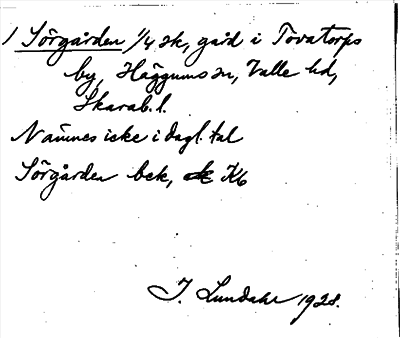 1 Sörgården 1/4 sk, gård i Tovatorps
by, Häggums sn, Valle hd,
Skarab. l.
Nämnes icke i dagl. tal
Sörgården bek, Kb
I. Lundahl 1928.